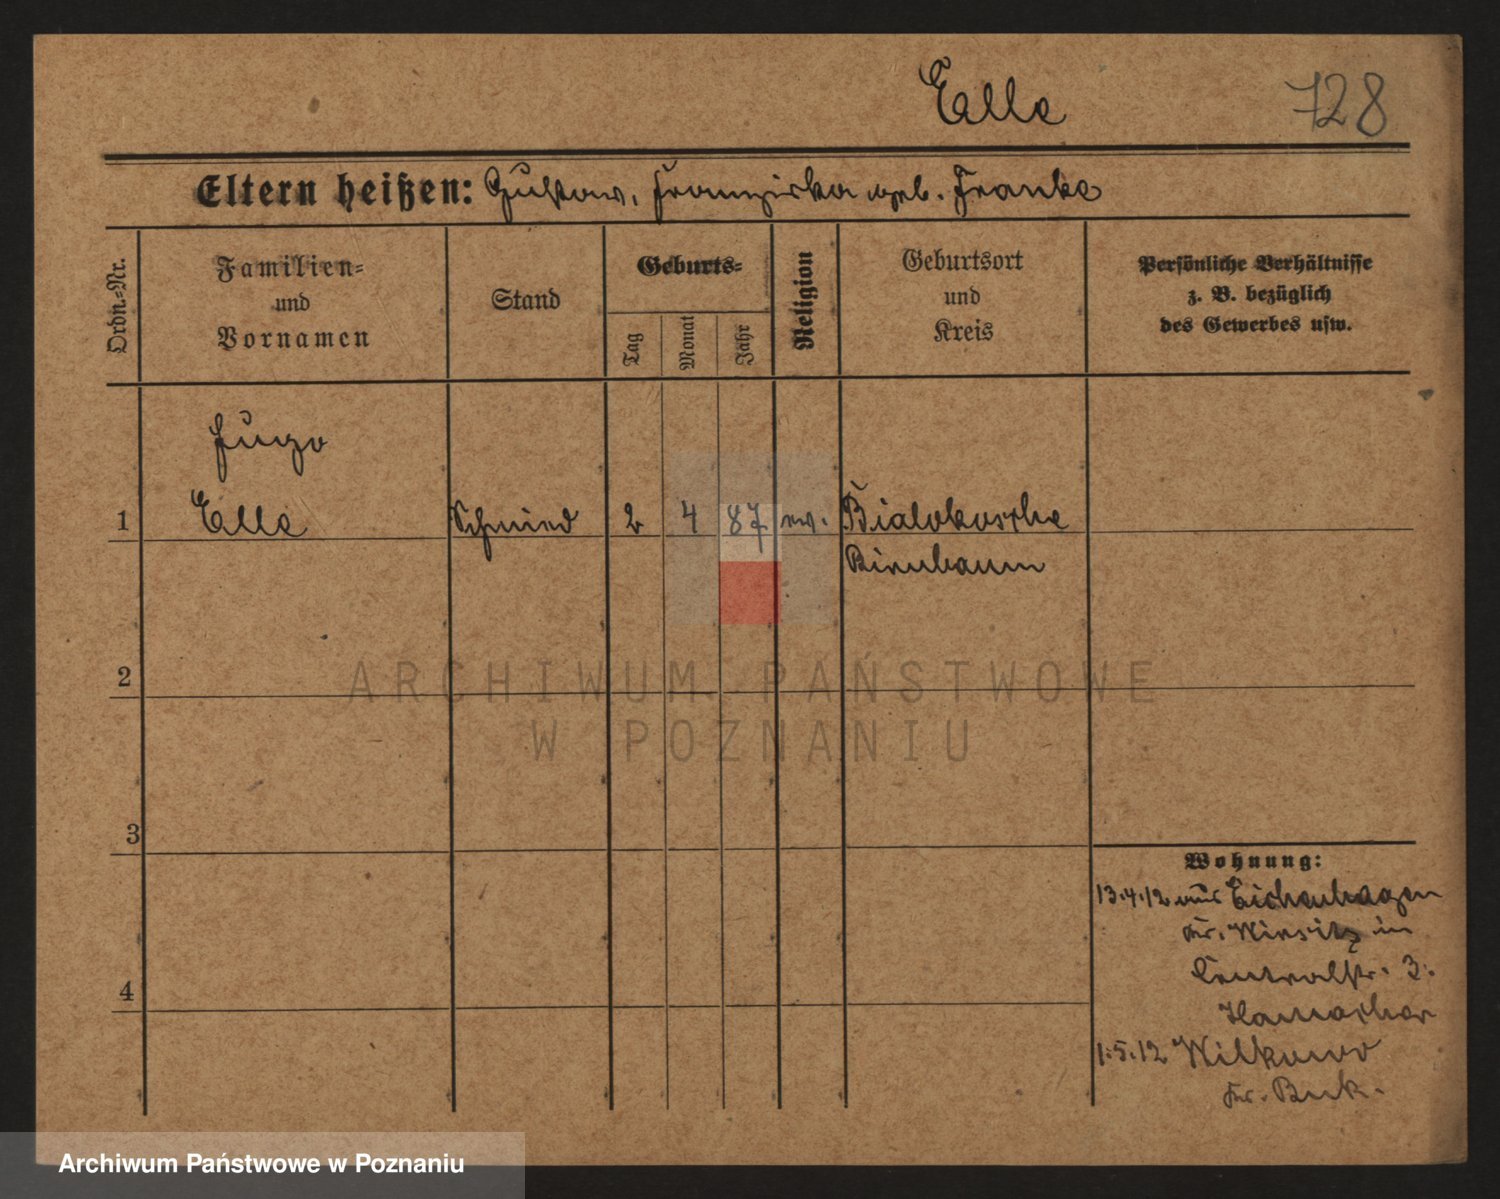 Ealle 728
Eltern heißen: Gustav, Franziska geb. Franke
Ordn.-Nr.
Familien-
und
Vornamen
Stand
Geburts-
Tag
Monat
Jahr
Religion
Geburtsort
und
Kreis
Persönliche Verhältnisse
z. B. bezüglich
des Gewerbes usw.
Hugo
1 Ealle Schmied 2 4 87 ev. Bialokosche
Birnbaum
2
ARCHIWUM PAŃSTWOWE
W POZNANIU
3
Wohnung:
13.4.12 aus Eichenhagen
Kr. Wirsitz in
Centralstr. 3.
4
1.5.12 Wilkowo
Kr. Buk.
Archiwum Państwowe w Poznaniu